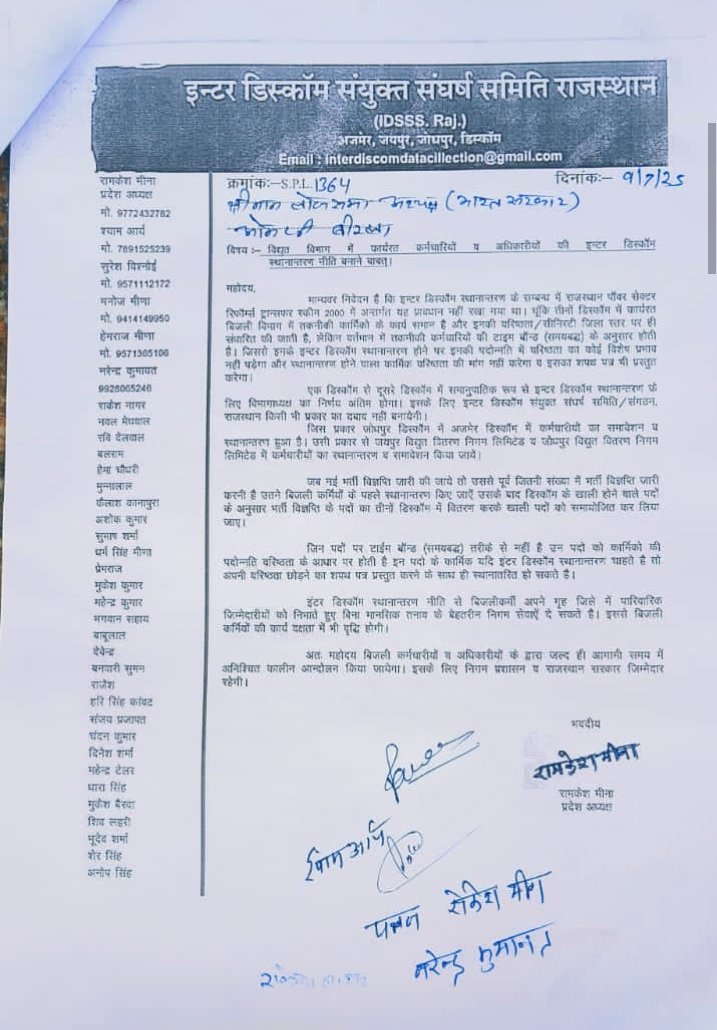 इन्टर डिस्कॉम संयुक्त संघर्ष समिति राजस्थान
(IDSSS. Raj.)
अजमेर, जयपुर, जोधपुर, डिस्कॉम
Email : interdiscomdatacillection@gmail.com
क्रमांकः–S.P.L.1364
दिनांकः– 9/7/25
श्रीमान लोकसभा अध्यक्ष (भारत सरकार)
ओम जी बीरला
विषय :– विद्युत विभाग में कार्यरत कर्मचारियों व अधिकारीयों की इन्टर डिस्कॉम
स्थानान्तरण नीति बनाने बाबत्।
महोदय,
मान्यवर निवेदन है कि इन्टर डिस्कॉम स्थानान्तरण के सम्बन्ध में राजस्थान पॉवर सेक्टर
रिफॉर्म्स ट्रान्सफर स्कीम 2000 में अन्तर्गत यह प्रावधान नहीं रखा गया था। चूंकि तीनों डिस्कॉम में कार्यरत
बिजली विभाग में तकनीकी कार्मिको के कार्य समान है और इनकी वरिष्ठता/सीनिरटी जिला स्तर पर ही
संधारित की जाती है, लेकिन वर्तमान में तकनीकी कर्मचारियों की टाइम बॉन्ड (समयबद्ध) के अनुसार होती
है। जिससे इनके इन्टर डिस्कॉम स्थानान्तरण होने पर इनकी पदोन्नति में वरिष्ठता का कोई विशेष प्रभाव
नहीं पडेगा और स्थानान्तरण होने वाला कार्मिक वरिष्ठता की मांग नहीं करेगा व इसका शपथ पत्र भी प्रस्तुत
करेगा।
एक डिस्कॉम से दूसरे डिस्कॉम में समानुपातिक रूप से इन्टर डिस्कॉम स्थानान्तरण के
लिए विभागाध्यक्ष का निर्णय अंतिम होगा। इसके लिए इन्टर डिस्कॉम संयुक्त संघर्ष समिति/संगठन,
राजस्थान किसी भी प्रकार का दबाव नहीं बनायेगी।
जिस प्रकार जोधपुर डिस्कॉम में अजमेर डिस्कॉम में कर्मचारीयों का समावेशन व
स्थानान्तरण हुआ है। उसी प्रकार से जयपुर विद्युत वितरण निगम लिमिटेड व जोधपुर विद्युत वितरण निगम
लिमिटेड में कर्मचारीयों का स्थानान्तरण व समावेशन किया जायें।
जब नई भर्ती विज्ञप्ति जारी की जाये तो उससे पूर्व जितनी संख्या में भर्ती विज्ञप्ति जारी
करनी है उतने बिजली कर्मियों के पहले स्थानान्तरण किए जाऐं उसके बाद डिस्कॉम के खाली होने वाले पदों
के अनुसार भर्ती विज्ञप्ति के पदों का तीनों डिस्कॉम में वितरण करके खाली पदों को समायोजित कर लिया
जाए।
जिन पदों पर टाईम बॉन्ड (समयबद्ध) तरीके से नहीं है उन पदो को कार्मिको की
पदोन्नति वरिष्ठता के आधार पर होती है इन पदों के कार्मिक यदि इंटर डिस्कॉम स्थानान्तरण चाहते है तो
अपनी वरिष्ठता छोड़ने का शपथ पत्र प्रस्तुत करने के साथ ही स्थानातरित हो सकते है।
इंटर डिस्कॉम स्थानान्तरण नीति से बिजलीकर्मी अपने गृह जिले में पारिवारिक
जिम्मेदारीयों को निभाते हुए बिना मानसिक तनाव के बेहतरीन निगम सेवाऐं दे सकते है। इससे बिजली
कर्मियों की कार्य दक्षता में भी वृद्धि होगी।
अतः महोदय बिजली कर्मचारीयों व अधिकारीयों के द्वारा जल्द ही आगामी समय में
अनिश्चित कालीन आन्दोलन किया जायेगा। इसके लिए निगम प्रशासन व राजस्थान सरकार जिम्मेदार
रहेगी।
भवदीय
रामकेश मीना
रामकेश मीना
प्रदेश अध्यक्ष
श्याम आर्य
पवन
नरेन्द्र कुमावत
रामकेश मीना
प्रदेश अध्यक्ष
मो. 9772432782
श्याम आर्य
मो. 7891525239
सुरेश विश्नोई
मो. 9571112172
मनोज मीणा
मो. 9414149950
हेमराज मीणा
मो. 9571365106
नरेन्द्र कुमावत
9928065246
राकेश नागर
नवल मेघवाल
रवि देलवाल
बलराम
हेमा चौधरी
मुन्नालाल
कैलाश कानापुरा
अशोक कुमार
सुभाष शर्मा
धर्म सिंह मीणा
प्रेमराज
मुकेश कुमार
महेन्द्र कुमार
भगवान सहाय
बाबूलाल
देवेन्द्र
बनवारी सुमन
राजेश
हरि सिंह कांवट
संजय प्रजापत
चंदन कुमार
दिनेश शर्मा
महेन्द्र टेलर
धारा सिंह
मुकेश बैरवा
शिव लहरी
भूदेव शर्मा
शेर सिंह
अनोप सिंह